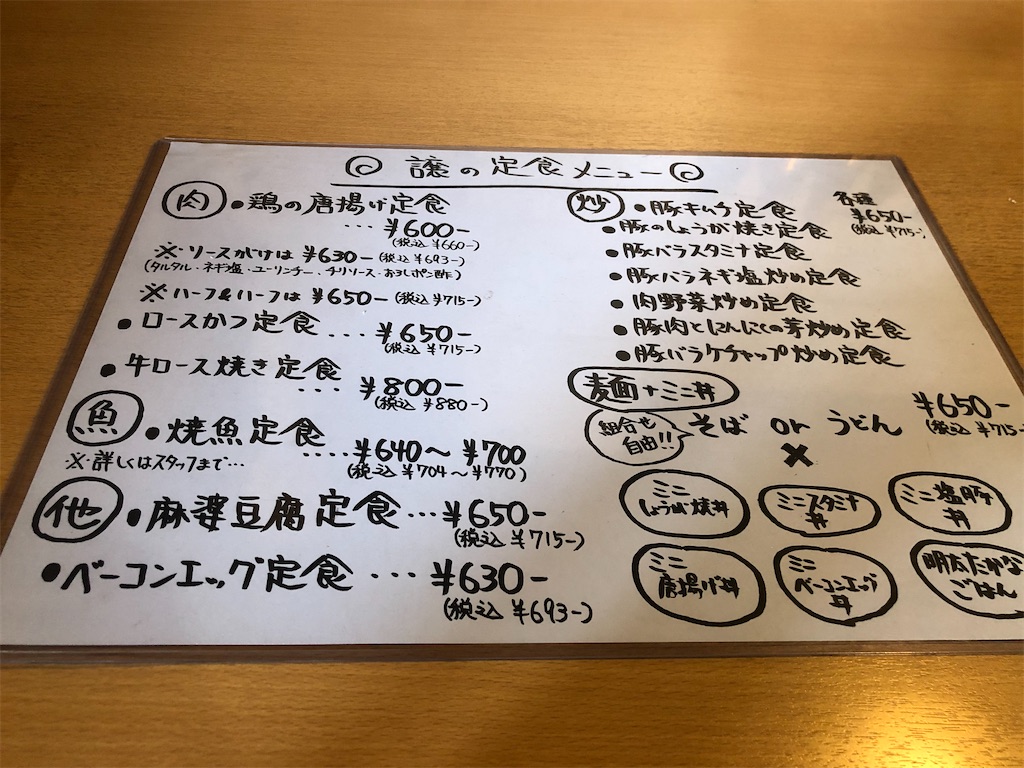 譲の定食メニュー
肉 ●鶏の唐揚げ定食
… ¥600-
(税込 ¥660-)
※ソースがけは ¥630- (税込 ¥693-)
(タルタル・ネギ塩・ユーリンチー・チリソース・おろしポン酢)
※ハーフ&ハーフは ¥650- (税込 ¥715-)
●ロースかつ定食 … ¥650-
(税込 ¥715-)
●牛ロース焼き定食
… ¥800-
(税込 ¥880-)
魚 ●焼魚定食
… ¥640〜¥700
※詳しくはスタッフまで… (税込 ¥704〜¥770)
他 ●麻婆豆腐定食 … ¥650-
(税込 ¥715-)
●ベーコンエッグ定食 … ¥630-
(税込 ¥693-)
炒 ●豚キムチ定食 各種
¥650-
(税込 ¥715-)
●豚のしょうが焼き定食
●豚バラスタミナ定食
●豚バラネギ塩炒め定食
●肉野菜炒め定食
●豚肉とにんにくの芽炒め定食
●豚バラケチャップ炒め定食
麺+ミニ丼
¥650-
(税込 ¥715-
組合せ
自由!!
そば or うどん
×
ミニ
しょうが焼丼
ミニスタミナ
丼
ミニ塩豚
丼
ミニ
唐揚げ丼
ミニ
ベーコンエッグ
丼
明太たかな
ごはん